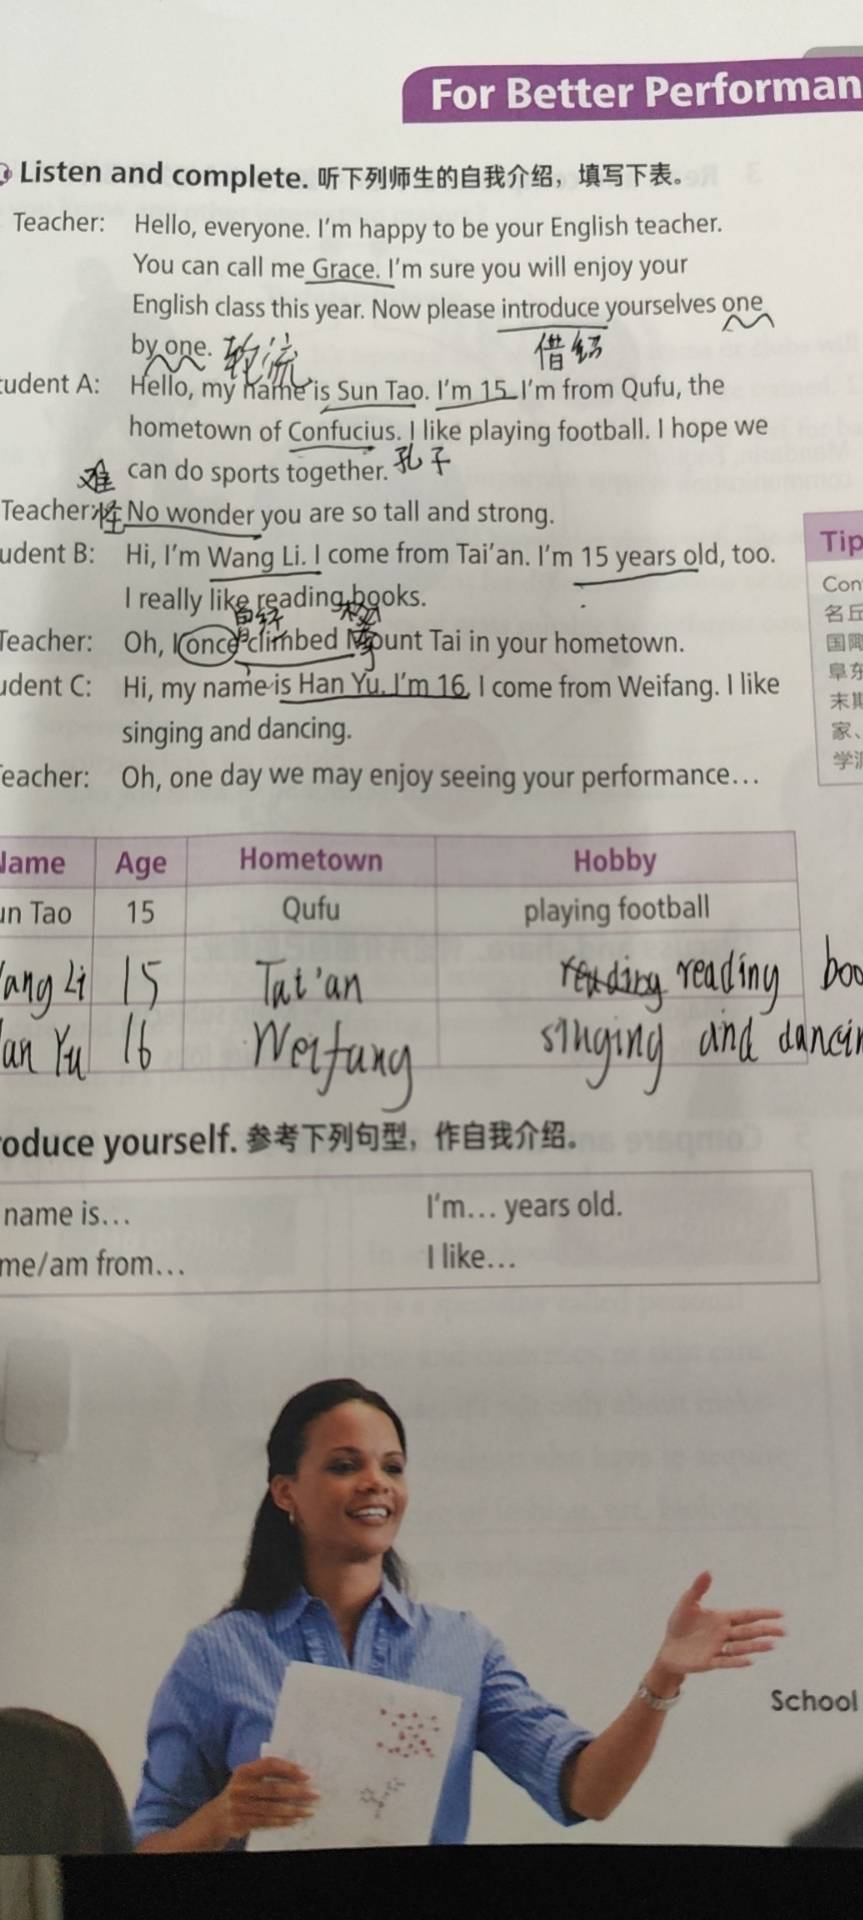 For Better Performan
Listen and complete. 听下列师生的自我介绍，填写下表。
Teacher: Hello, everyone. I'm happy to be your English teacher.
You can call me Grace. I'm sure you will enjoy your
English class this year. Now please introduce yourselves one
by one. 轮流 借绍
tudent A: Hello, my name is Sun Tao. I'm 15. I'm from Qufu, the
hometown of Confucius. I like playing football. I hope we
难 can do sports together. 孔子
Teacher: 怪 No wonder you are so tall and strong.
udent B: Hi, I'm Wang Li. I come from Tai'an. I'm 15 years old, too.
I really like reading books.
Teacher: Oh, I once climbed Mount Tai in your hometown.
udent C: Hi, my name is Han Yu. I'm 16. I come from Weifang. I like
singing and dancing.
eacher: Oh, one day we may enjoy seeing your performance…
Tip
Con
名丘
国陬
阜东
末期
家、
学派
Name Age Hometown Hobby
un Tao 15 Qufu playing football
ang Li 15 Tat'an reading boo
an Yu 16 Weifang singing and dancin
roduce yourself. 参考下列句型，作自我介绍。
name is… I'm… years old.
me/am from… I like…
School